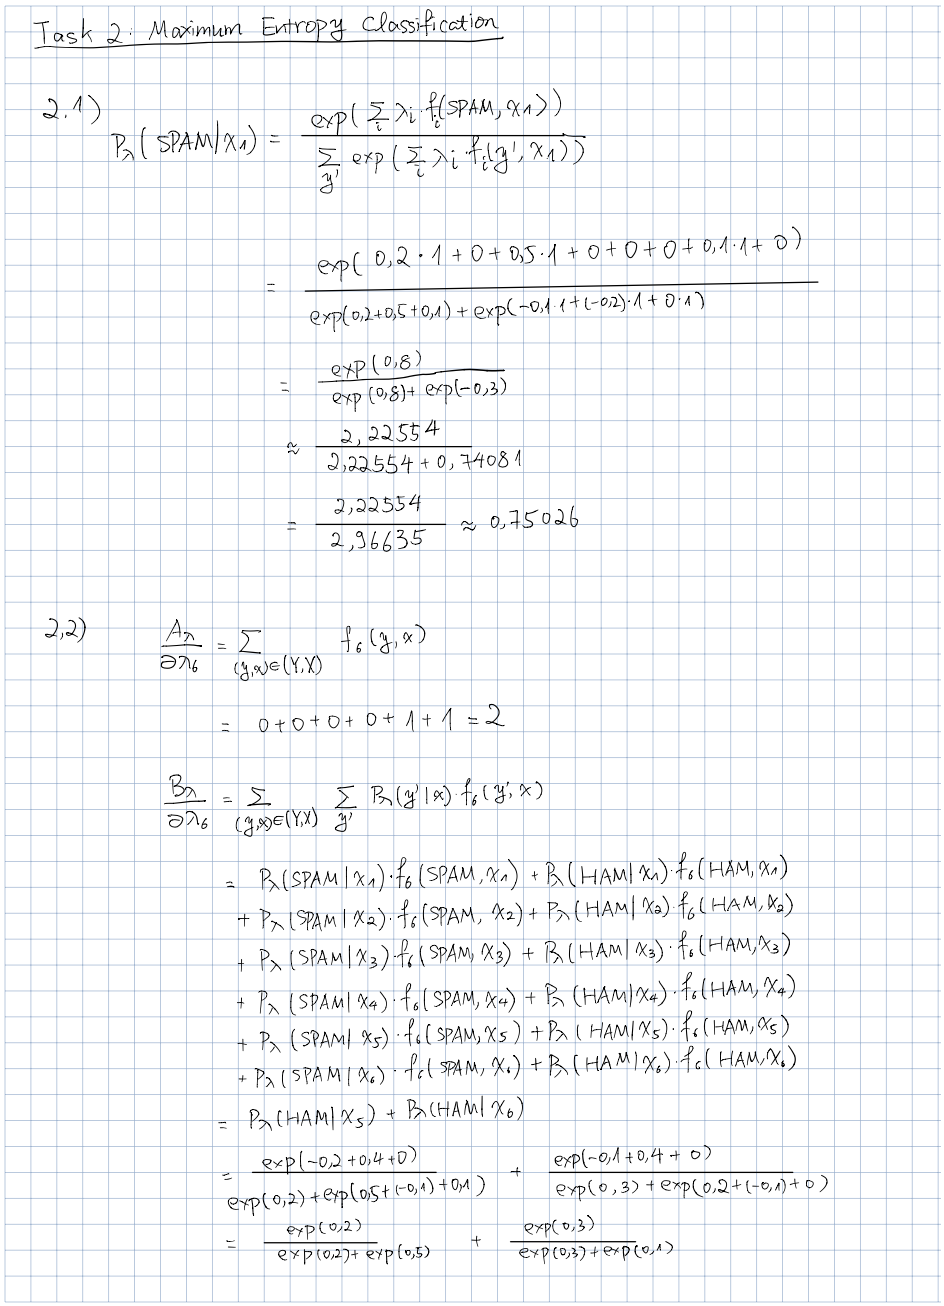 Task 2: Maximum Entropy Classification
2.1)
P_λ(SPAM|x1) = exp(∑_i λi·fi(SPAM, x1)) / ∑_y' exp(∑_i λi·fi(y', x1))
= exp(0,2·1+0+0,5·1+0+0+0+0,1·1+0) / exp(0,2+0,5+0,1)+exp(-0,1·1+(-0,2)·1+0·1)
= exp(0,8) / exp(0,8)+exp(-0,3)
≈ 2,22554 / 2,22554+0,74081
= 2,22554 / 2,96635 ≈ 0,75026
2,2)
A_λ / ∂λ6 = ∑_(y,x)∈(Y,X) f6(y,x)
= 0+0+0+0+1+1=2
B_λ / ∂λ6 = ∑_(y,x)∈(Y,X) ∑_y' P_λ(y'|x)·f6(y',x)
= P_λ(SPAM|x1)·f6(SPAM,x1)+P_λ(HAM|x1)·f6(HAM,x1)
+ P_λ(SPAM|x2)·f6(SPAM,x2)+P_λ(HAM|x2)·f6(HAM,x2)
+ P_λ(SPAM|x3)·f6(SPAM,x3)+P_λ(HAM|x3)·f6(HAM,x3)
+ P_λ(SPAM|x4)·f6(SPAM,x4)+P_λ(HAM|x4)·f6(HAM,x4)
+ P_λ(SPAM|x5)·f6(SPAM,x5)+P_λ(HAM|x5)·f6(HAM,x5)
+ P_λ(SPAM|x6)·f6(SPAM,x6)+P_λ(HAM|x6)·f6(HAM,x6)
= P_λ(HAM|x5)+P_λ(HAM|x6)
= exp(-0,2+0,4+0) / exp(0,2)+exp(0,5+(-0,1)+0,1) + exp(-0,1+0,4+0) / exp(0,3)+exp(0,2+(-0,1)+0)
= exp(0,2) / exp(0,2)+exp(0,5) + exp(0,3) / exp(0,3)+exp(0,1)